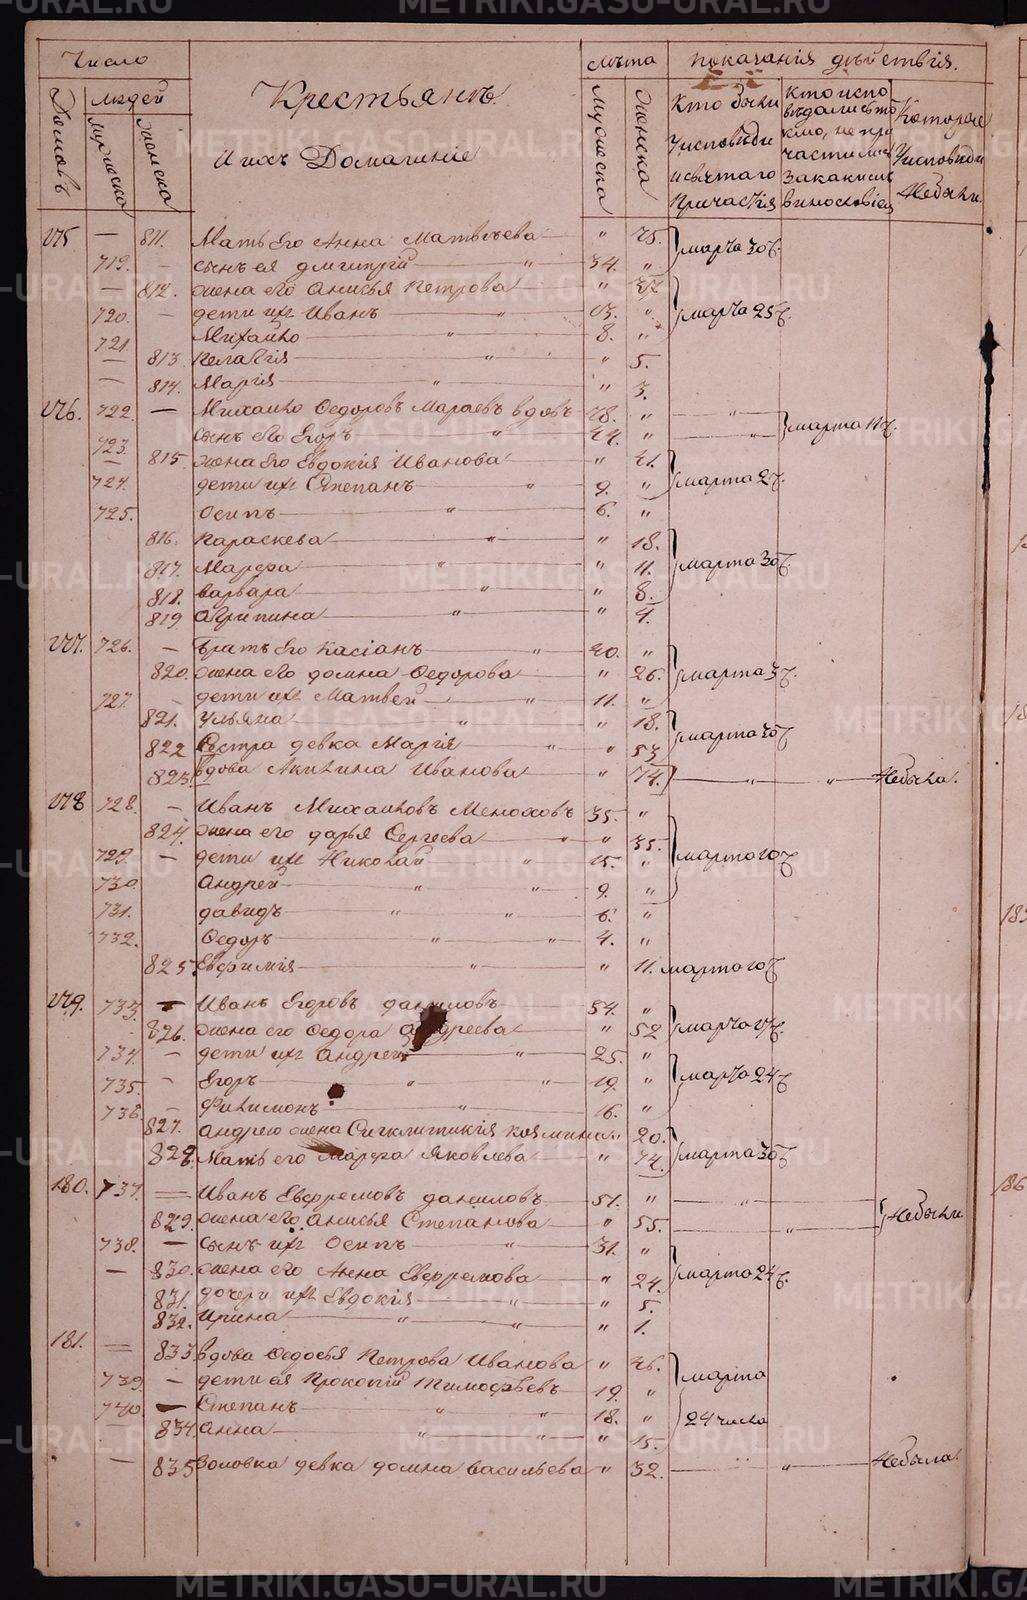 Число
Крестьянъ
лѣта
показанія дѣйствія.
Домовъ
людей
мужеска
женска
И ихъ Домашніе
Мужеска
Женска
Кто были
Уисповѣди
и святаго
Причастія
кто испо
вѣдались то
кмо, не при
частились
за какимъ
винословіем
Которые
Уисповѣди
Небыли.
175 — 811. Мать Его Анна Матвѣева — " 75. марта 30 ч.
719. — сынъ ея дмитрій — " — 34. "
— 812. жена его Анисья Петрова — " 37 марта 25 ч.
720. — дети ихъ Иванъ — " — 13. "
721. Михайло — " — 8. "
— 813 Пелагія — " — " 5.
— 814. Марія — " — " 3.
176. 722. — Михайло Федоровъ Мараевъ вдовъ 78. " — " — марта 11 ч.
723. сынъ его Егоръ — " — 44. " — " —
— 815 жена Его Евдокія Иванова — " 41. марта 27 ч.
724. дети ихъ Степанъ — " — 9. "
725. Осипъ — " — 6. "
816. Параскева — " — " 18. марта 30 ч.
817. Марфа — " — " 11.
818. варвара — " — " 8.
819 Агрипина — " — " 4.
177. 726. — Братъ Его Касіанъ — " — 40. "
820. жена его домна Федорова — " 26. марта 3 ч.
727. — дети ихъ Матвей — " — 11. "
821. Ульяна — " — " 18. марта 30 ч.
822 Сестра девка Марія — " — " 53
823. вдова Акилина Иванова — " 74. — " — " — Небыла.
178 728. — Иванъ Михаиловъ Менюховъ 35. "
824. жена его дарья Сергѣева — " — " 35. марта 10 ч.
729. — дети ихъ Николай — " — 15. "
730. Андрей — " — " — 9. "
731. давидъ — " — " — 6. "
732. Федоръ — " — " — 4. "
825. Евфимія — " — " 11. марта 10 ч.
179. 733. — Иванъ Егоровъ даниловъ — 54. "
826. жена его Федора Андреева — " 52 марта 17 ч.
734. — дети ихъ Андрей — " — 25. "
735. — Егоръ — " — " — 19. " марта 24 ч.
736. — Филимонъ — " — 16. "
827. андрею жена Сигклитикія козмина " 20.
828. Мать его Марфа Яковлева — " 74. марта 30 ч.
180. 737. — Иванъ Евфремовъ даниловъ — 51. " — " — Небыли
829. жена его Анисья Степанова — " 55. — " —
738. — Сынъ ихъ Осипъ — " — 31. "
— 830. жена его Анна Евфремова — " 24. марта 24 ч.
831. дочери ихъ Евдокія — " — " 5.
832. Ирина — " — " — " 1.
181. — 833 вдова Федосья Петрова Иванова " 46.
739. — дети ея Прокопій Тимофѣевъ — 19. " марта
740. — Степанъ — " — " — 18. " 24 числа
— 834. анна — " — " — " 15.
— 835 Золовка девка домна васильева " 32. — " — Небыла.